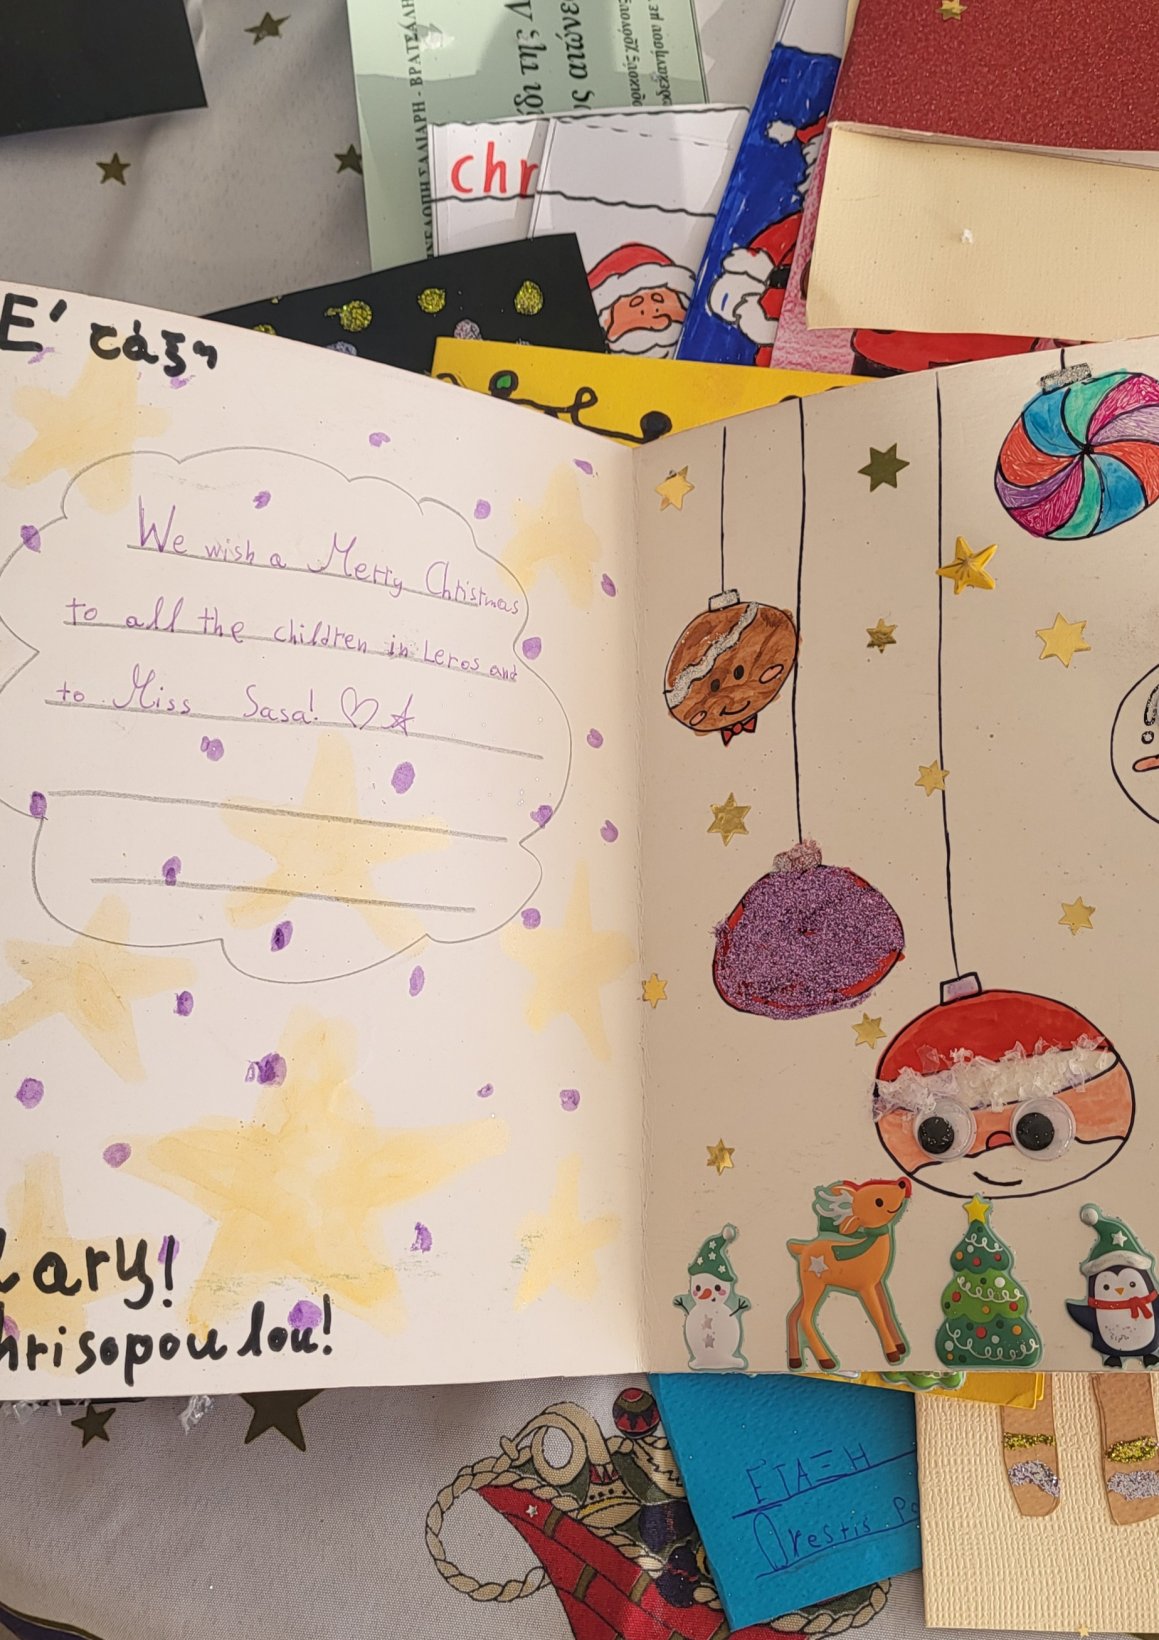 Ε' τάξη
We wish a Merry Christmas
to all the children in Leros and
to Miss Sasa! ♡☆
lary!
hrisopoulou!
chr
ΣΑΛΙΑΡΗ - ΒΡΑΤΣΑΛΗ
ΕΤΑΞΗ
Orestis